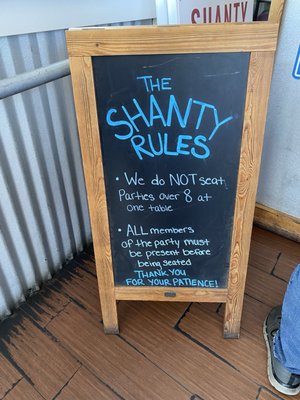 SHANTY
THE
SHANTY
RULES
• We do NOT seat
Parties over 8 at
one table
• ALL members
of the party must
be present before
being seated
THANK YOU
FOR YOUR PATIENCE!